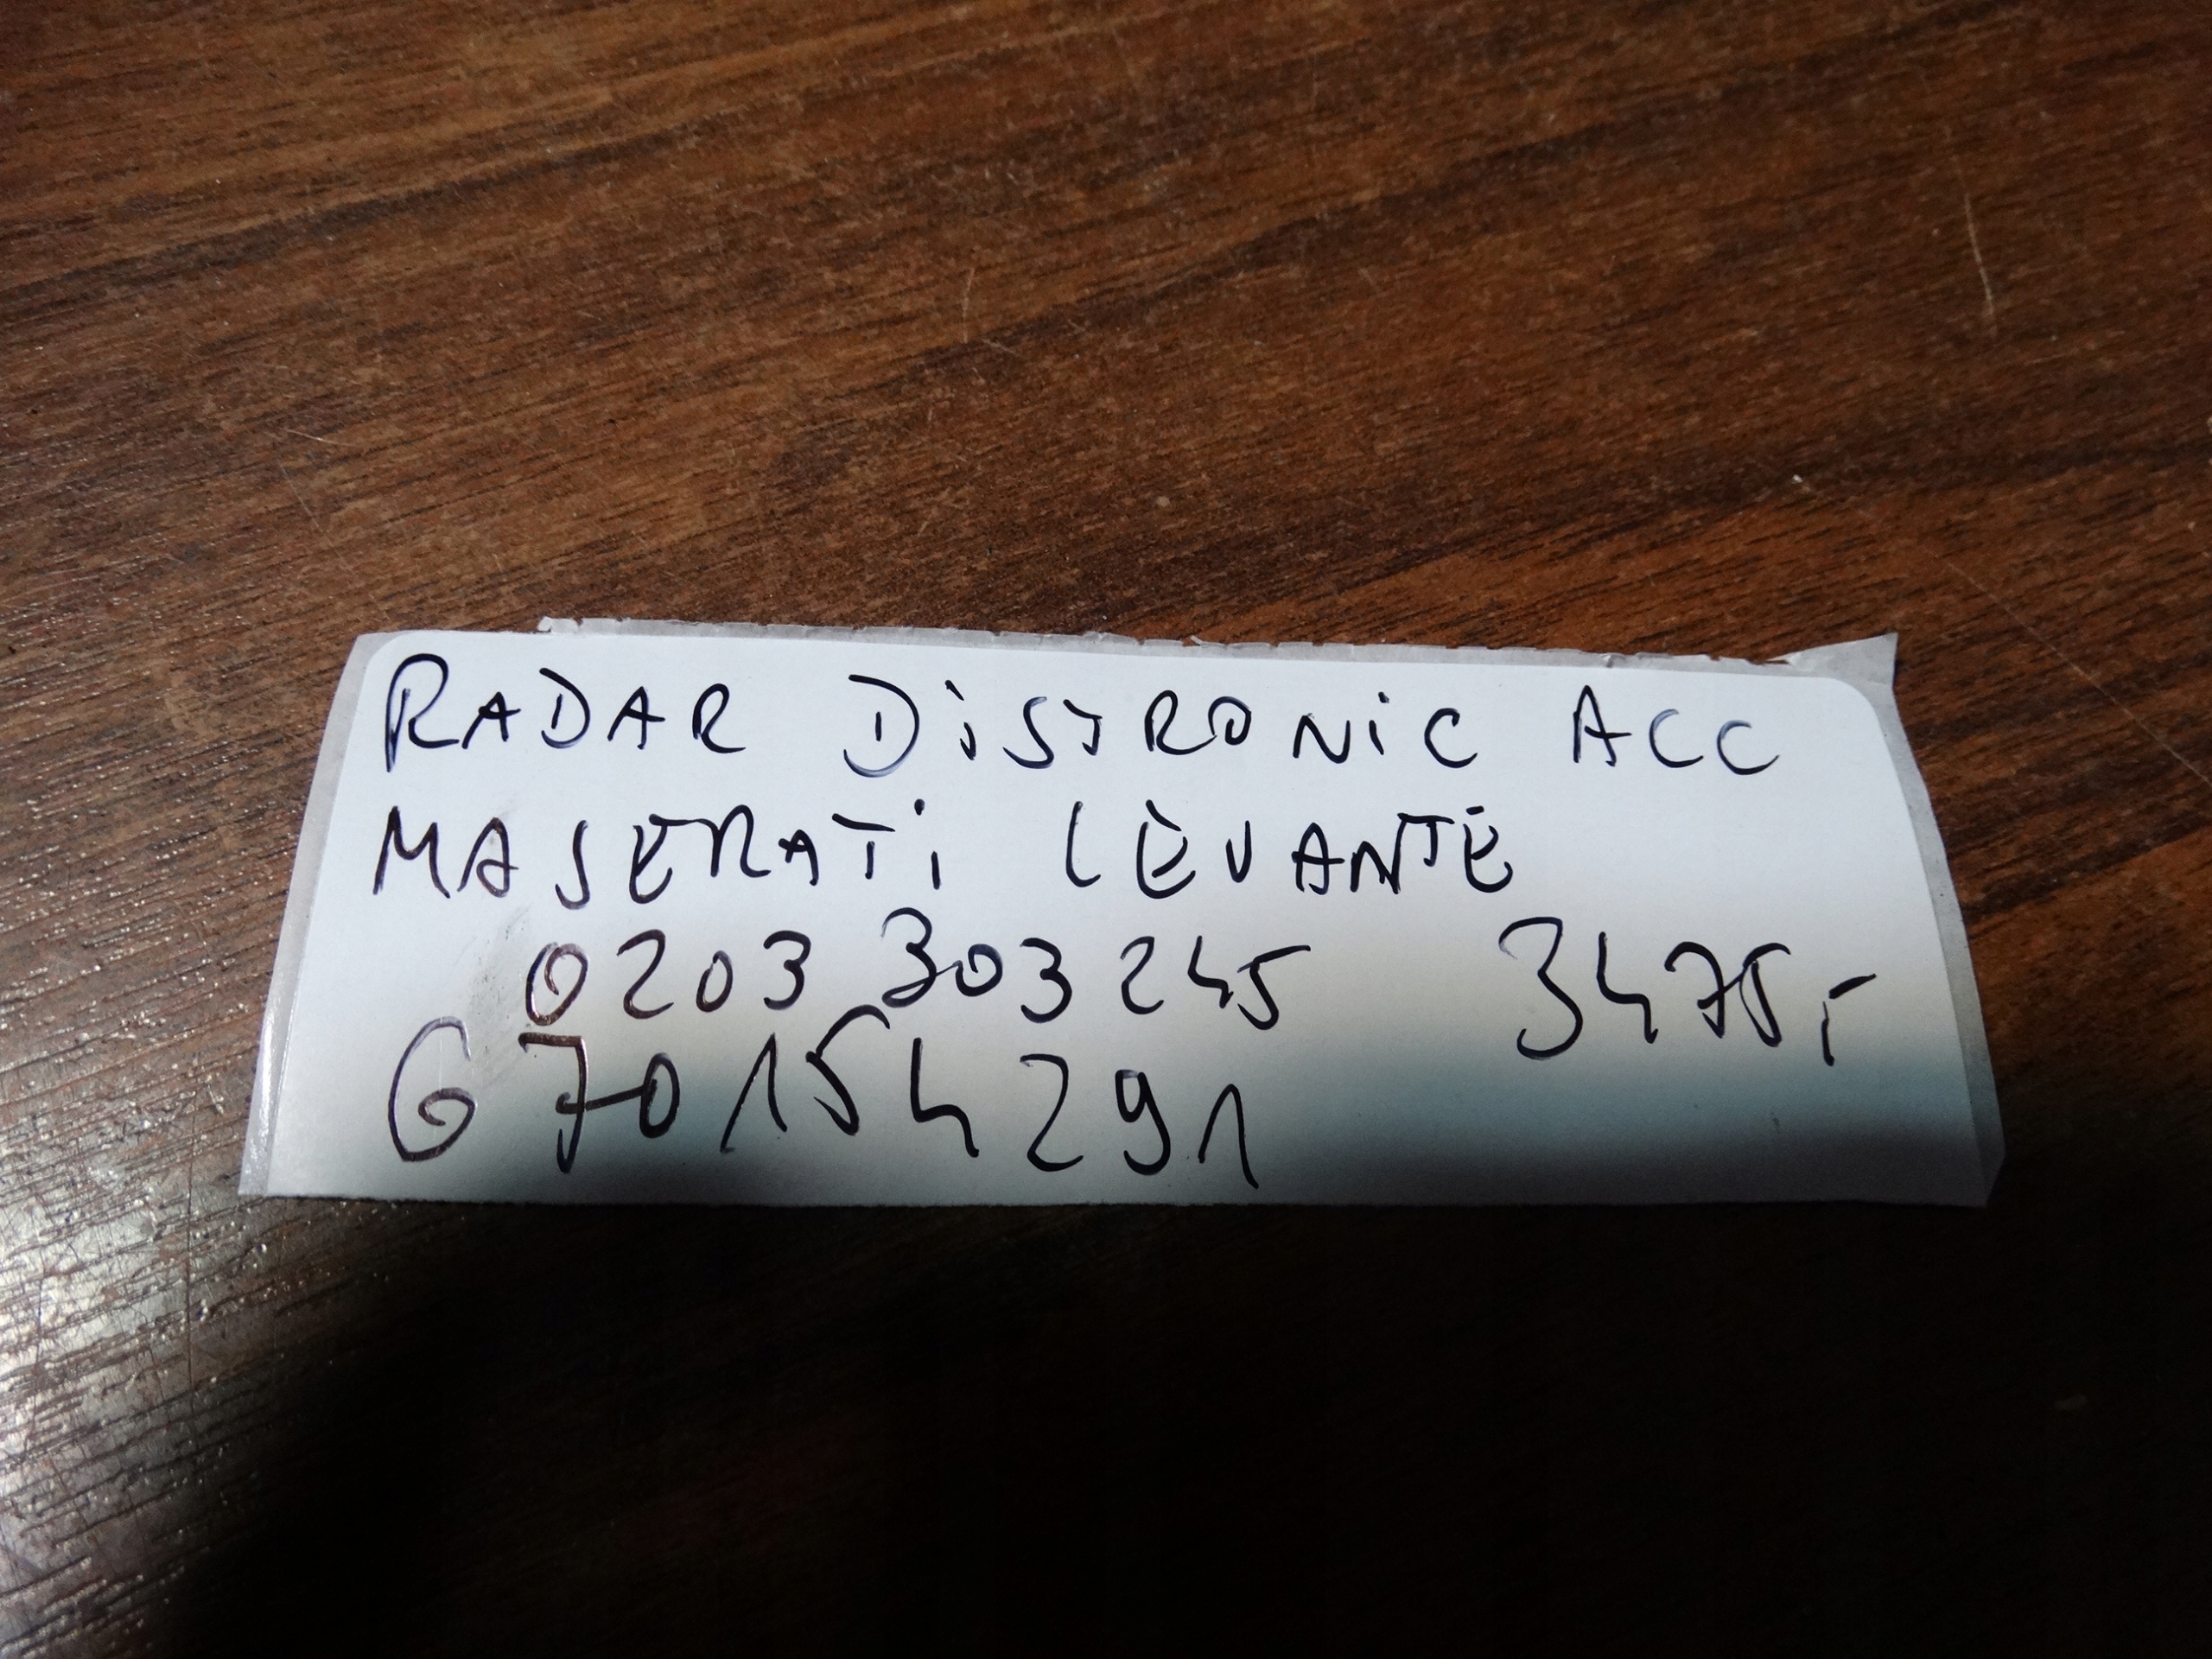 RADAR DiSTRONiC ACC
MASERATi LEVANTE
0203 303 245 3475,-
670154291